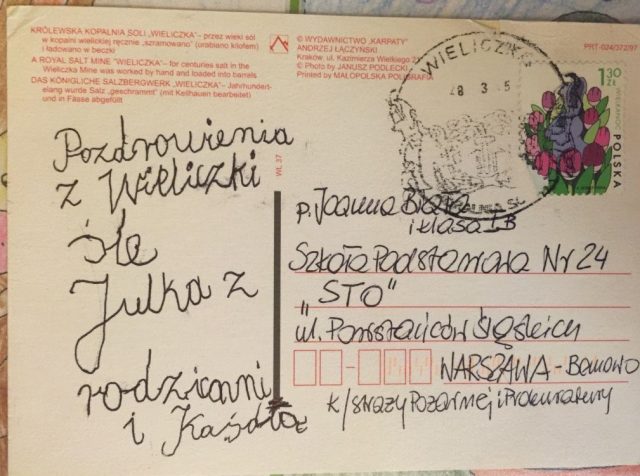 KRÓLEWSKA KOPALNIA SOLI „WIELICZKA” – przez wieki sól
w kopalni wielickiej ręcznie „szramowano” (urabiano kilofem)
i ładowano w beczki
A ROYAL SALT MINE "WIELICZKA" – for centuries salt in the
Wieliczka Mine was worked by hand and loaded into barrels
DAS KÖNIGLICHE SALZBERGWERK „WIELICZKA” – Jahrhundert-
elang wurde Salz „geschrammt” (mit Keilhauen bearbeitet)
und in Fässe abgefüllt
© WYDAWNICTWO „KARPATY”
ANDRZEJ ŁĄCZYŃSKI
Kraków, ul. Kazimierza Wielkiego
© Photo by JANUSZ PODLECKI
Printed by MAŁOPOLSKA POLIGRAFIA
PRT-024/372/97
WIELICZKA
1,30
ZŁ
POLSKA
WIL 37
Pozdrowienia
z Wieliczki
śle
Julka z
rodzicami
i Kasią
p. Joanna Biała
i klasa IB
Szkoła Podstawowa Nr 24
„STO”
ul. Powstańców Śląskich
WARSZAWA - Bemowo
k/straży Pożarnej i Prokuratury